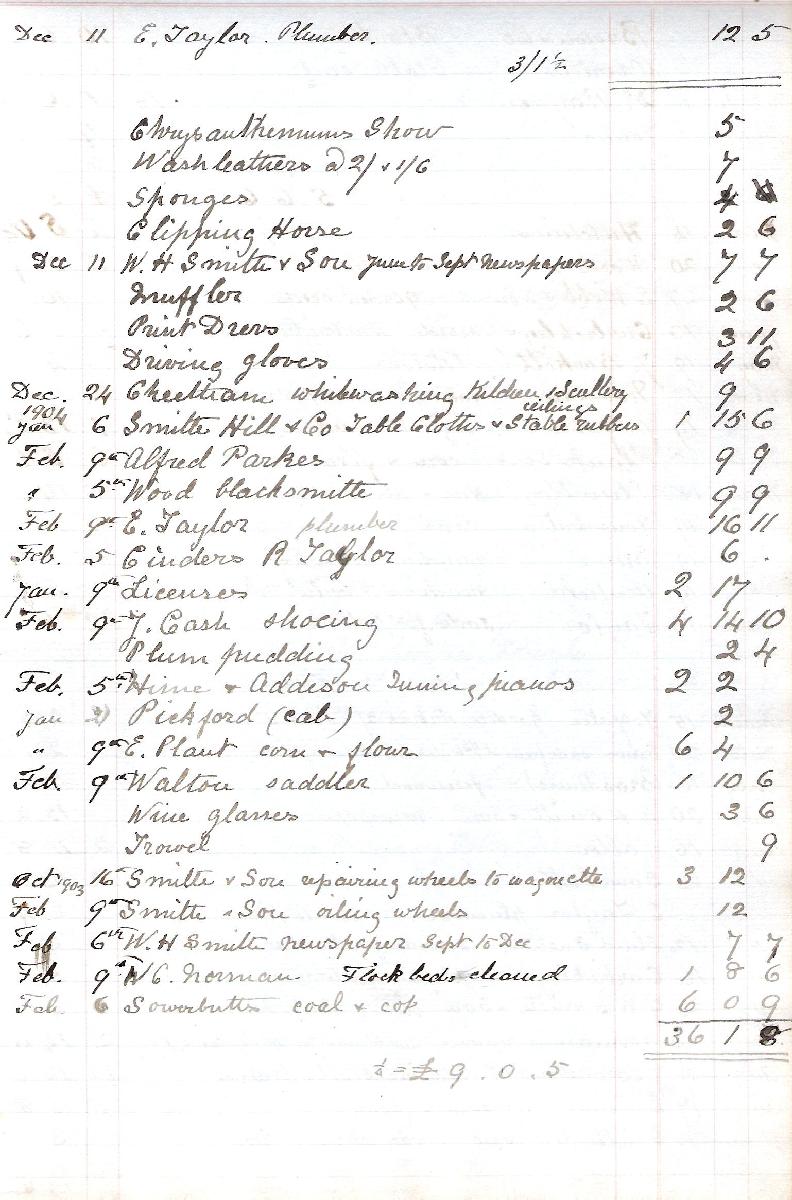 Dec 11 E. Taylor. Plumber. 12 5
3/1½
Chrysanthemums Show 5
Wash leathers @ 2/ & 1/6 7
Sponges 4
Clipping Horse 2 6
Dec 11 W. H Smith & Son June to Sept newspapers 7 7
Muffler 2 6
Print Dress 3 11
Driving gloves 4 6
Dec. 24 Cheetham whitewashing Kitchen & Scullery 9
ceilings
1904
Jan 6 Smith Hill & Co Table Cloths & Stable rubbers 1 15 6
Feb. 9th Alfred Parkes 9 9
" 5th Wood blacksmith 9 9
Feb 9th E. Taylor plumber 16 11
Feb. 5 Cinders R Taylor 6 .
Jan. 9th Licenses 2 17
Feb. 9th J. Cash shoeing 4 14 10
Plum pudding 2 4
Feb. 5th Hime & Addison Tuning pianos 2 2
Jan 21 Pickford (cab) 2
" 9th E. Plant corn & flour 6 4
Feb. 9th Walton saddler 1 10 6
Wine glasses 3 6
Trowel 9
Oct 1903 16th Smith & Son repairing wheels to wagonette 3 12
Feb 9th Smith & Son oiling wheels 12
Feb 6th W. H Smith newspaper Sept to Dec 7 7
Feb. 9th W C. Norman Flock beds cleaned 1 8 6
Feb. 6 Sowerbutts coal & cok 6 0 9
36 1 8
¼ = £ 9 . 0 . 5